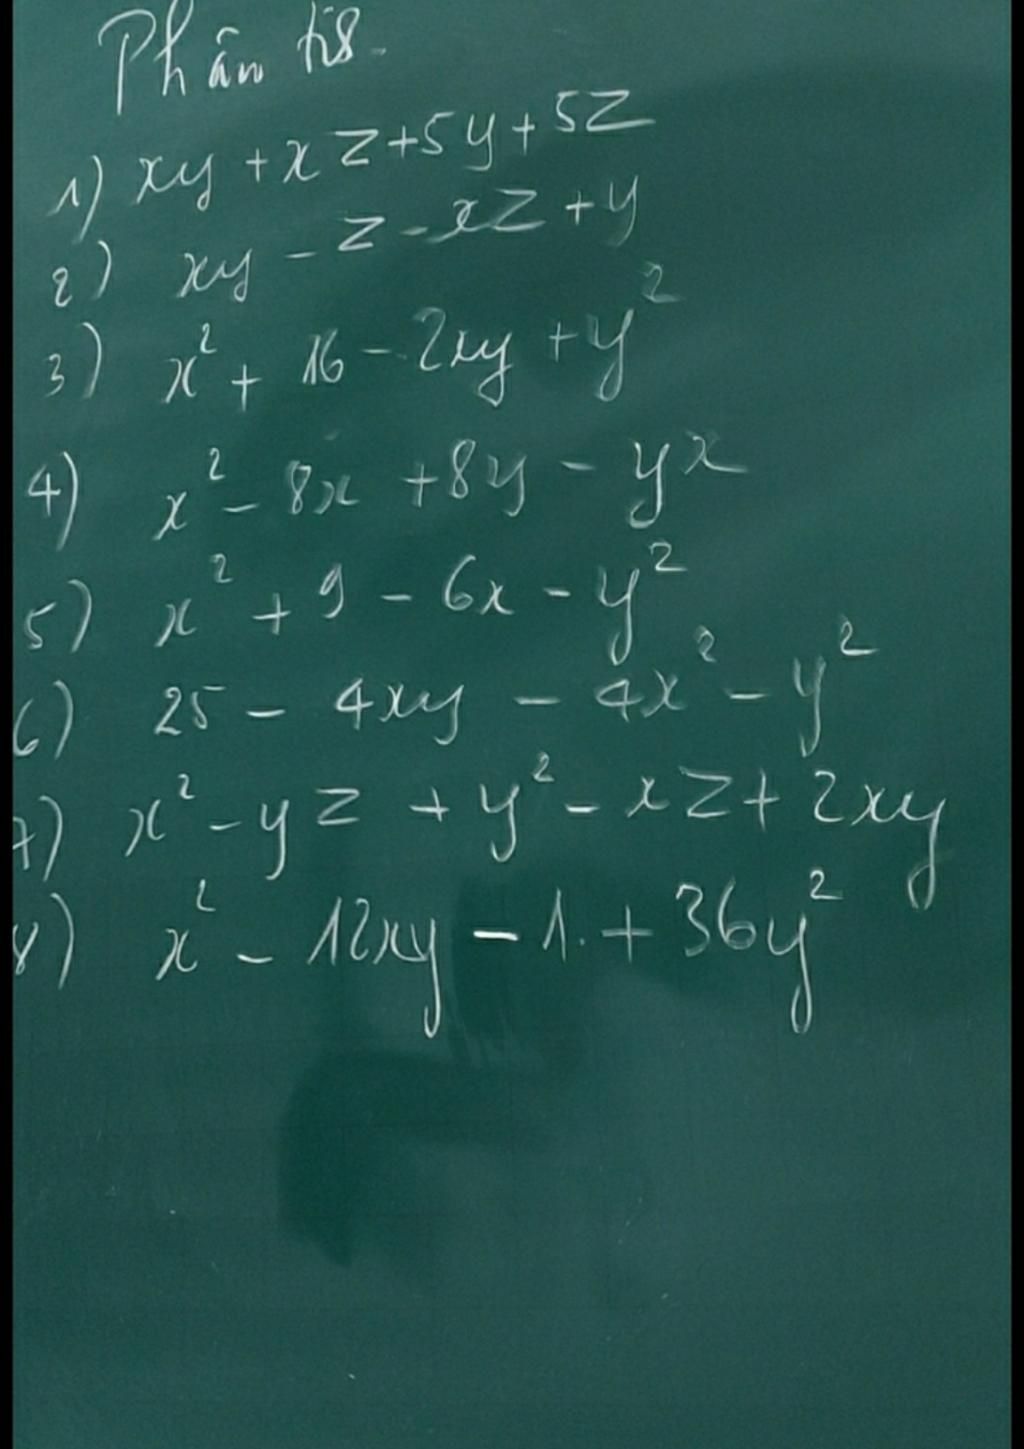 Phân tiß
1) xy + xz + 5y + 5z
2) xy - z - xz + y
3) x² + 16 - 2xy + y²
4) x² - 8x + 8y - yx
5) x² + 9 - 6x - y²
6) 25 - 4xy - 4x² - y²
7) x² - yz + y² - xz + 2xy
8) x² - 12xy - 1 + 36y²